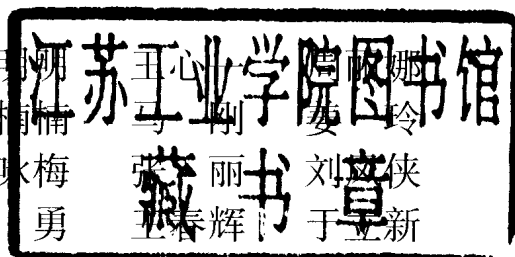 江苏工业学院图书馆
藏书章
明 王心一 娜
楠 马刚 娄玲
咏梅 张丽 刘侠
勇 王春辉 于立新